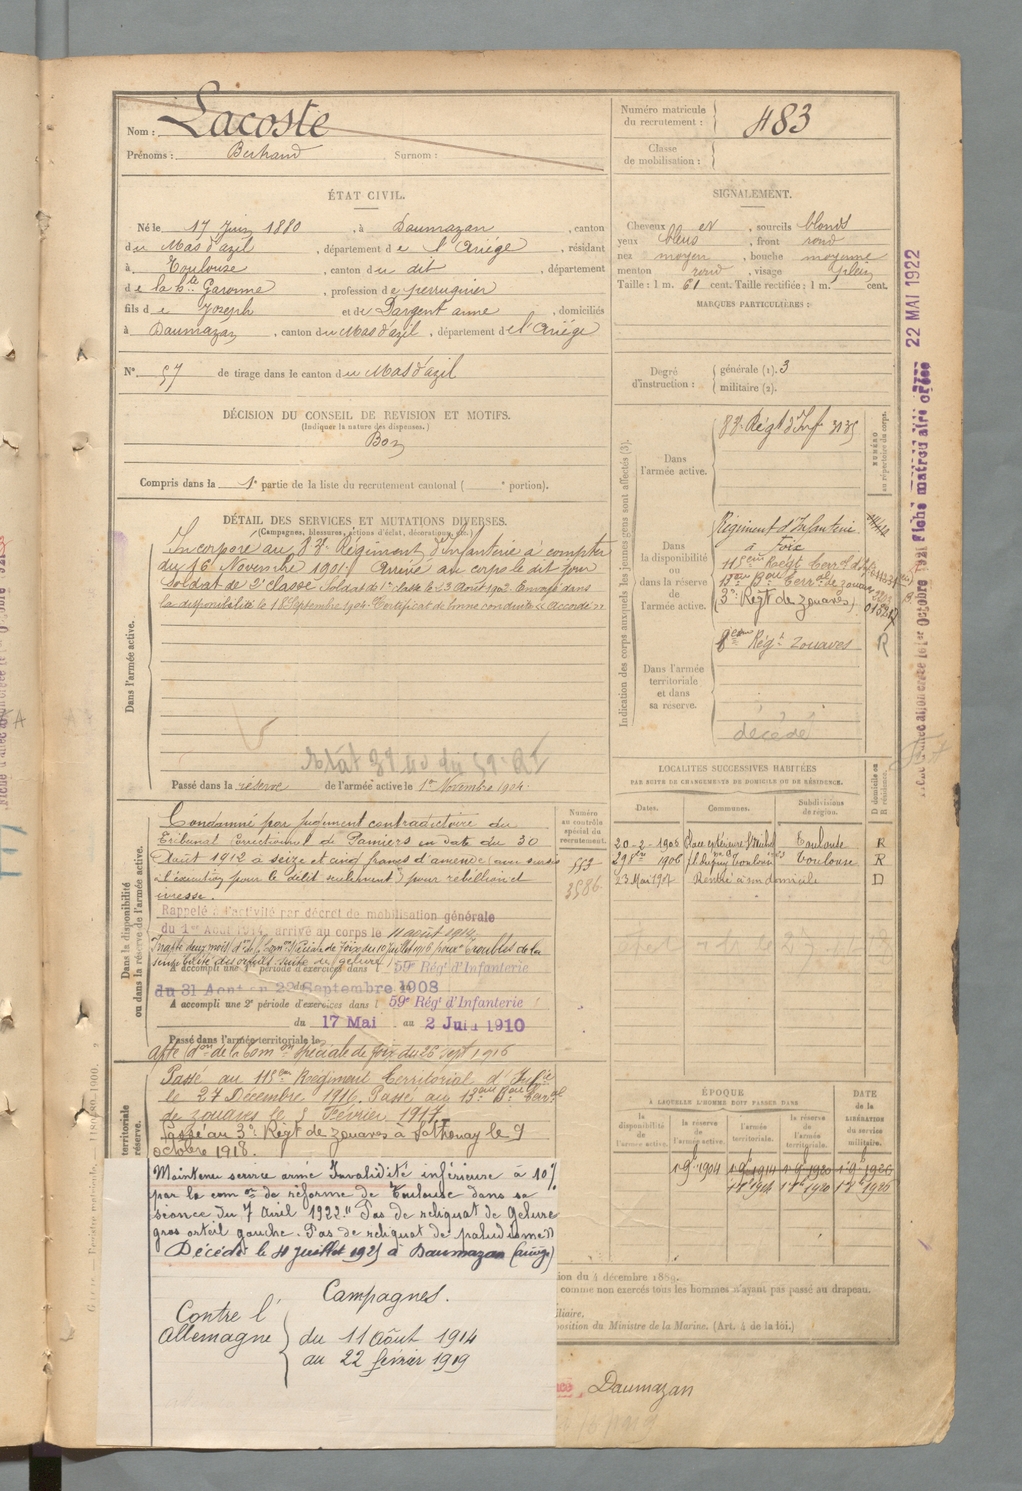 Nom : Lacoste
Prénoms : Bertrand Surnom :
Numéro matricule du recrutement : 483
Classe de mobilisation :
ÉTAT CIVIL.
Né le 17 Juin 1880, à Daumazan, canton
du Mas d'azil, département de l'Ariège, résidant
à Toulouse, canton du dit, département
de la hte Garonne, profession de perruquier
fils de Joseph et de Dargent anne, domiciliés
à Daumazan, canton du Mas d'azil, département de l'Ariège
N° 57 de tirage dans le canton du Mas d'azil
DÉCISION DU CONSEIL DE REVISION ET MOTIFS.
(Indiquer la nature des dispenses.)
Bon
Compris dans la 1e partie de la liste du recrutement cantonal ( e portion).
SIGNALEMENT.
Cheveux et, sourcils blonds
yeux bleus, front rond
nez moyen, bouche moyenne
menton rond, visage plein
Taille : 1 m. 61 cent. Taille rectifiée : 1 m. cent.
MARQUES PARTICULIÈRES :
Degré d'instruction : générale (1). 3
militaire (2).
DÉTAIL DES SERVICES ET MUTATIONS DIVERSES.
(Campagnes, blessures, actions d'éclat, décorations, etc.)
Dans l'armée active.
Incorporé au 83e Régiment d'Infanterie à compter
du 16 Novembre 1901. Arrivé au corps le dit jour
Soldat de 2e classe Soldat de 1re classe le 23 Août 1902 Envoyé dans
la disponibilité le 18 Septembre 1904. Certificat de bonne conduite "Accordé"
Passé dans la réserve de l'armée active le 1er Novembre 1904.
Indication des corps auxquels les jeunes gens sont affectés (3).
NUMÉRO au répertoire du corps.
Dans l'armée active.
83e Régt d'Inf 3135
Dans la disponibilité ou dans la réserve de l'armée active.
Régiment d'Infanterie
à Foix
115eme Régt Terral d'Inf
13eme Bon Terral de zouaves
(3e Régt de Zouaves)
Dans l'armée territoriale et dans sa réserve.
Régt Zouaves R
décédé
LOCALITÉS SUCCESSIVES HABITÉES
PAR SUITE DE CHANGEMENTS DE DOMICILE OU DE RÉSIDENCE.
Dates. Communes. Subdivisions de région. D domicile ou R résidence.
20-2-1906 Place extérieure St Michel Toulouse R
1906 Toulouse R
23 Mai 1907 Rentré à son domicile D
Numéro au contrôle spécial du recrutement.
Dans la disponibilité ou dans la réserve de l'armée active.
Condamné par jugement contradictoire du
Tribunal Correctionnel de Pamiers en date du 30
Août 1912 à seize et cinq francs d'amende (avec sursis
à l'exécution pour le délit seulement) pour rébellion et
ivresse.
Rappelé à l'activité par décret de mobilisation générale
du 1er Août 1914, arrivé au corps le 11 août 1914.
Inapte deux mois don de la Comon Spéciale de Foix du 10 Juillet 1916 pour troubles de la
sensibilité des orteils suite de gelure
A accompli une 1re période d'exercices dans l 59e Régt d'Infanterie
du 31 Aout au 22 Septembre 1908
A accompli une 2e période d'exercices dans l 59e Régt d'Infanterie
du 17 Mai au 2 Juin 1910
Passé dans l'armée territoriale le
Apte don de la Comon Spéciale de Foix du 26 Sept 1916
territoriale
réserve.
Passé au 115eme Régiment territorial d'Infie
le 27 Décembre 1916. Passé au 13eme Bon Terral
de zouaves le 5 Février 1917
Passé au 3e Régt de zouaves à Parthenay le 9
octobre 1918.
Maintenu service armé Invalidité inférieure à 10%
par la comon de réforme de Toulouse dans sa
séance du 7 Avril 1922. "Pas de reliquat de gelure
gros orteil gauche. Pas de reliquat de paludisme"
Décédé le 4 Juillet 1925 à Daumazan (Ariège)
Campagnes.
Contre l'Allemagne
du 11 Août 1914
au 22 février 1919
ÉPOQUE
À LAQUELLE L'HOMME DOIT PASSER DANS
la disponibilité de l'armée active. la réserve de l'armée active. l'armée territoriale. la réserve de l'armée territoriale.
DATE de la LIBÉRATION du service militaire.
1 9bre 1904 1 9bre 1914 1 9bre 1920 1 9bre 1926
ion du 4 décembre 1889.
comme non exercés tous les hommes n'ayant pas passé au drapeau.
iliaire.
position du Ministre de la Marine. (Art. 4 de la loi.)
Daumazan
22 MAI 1922